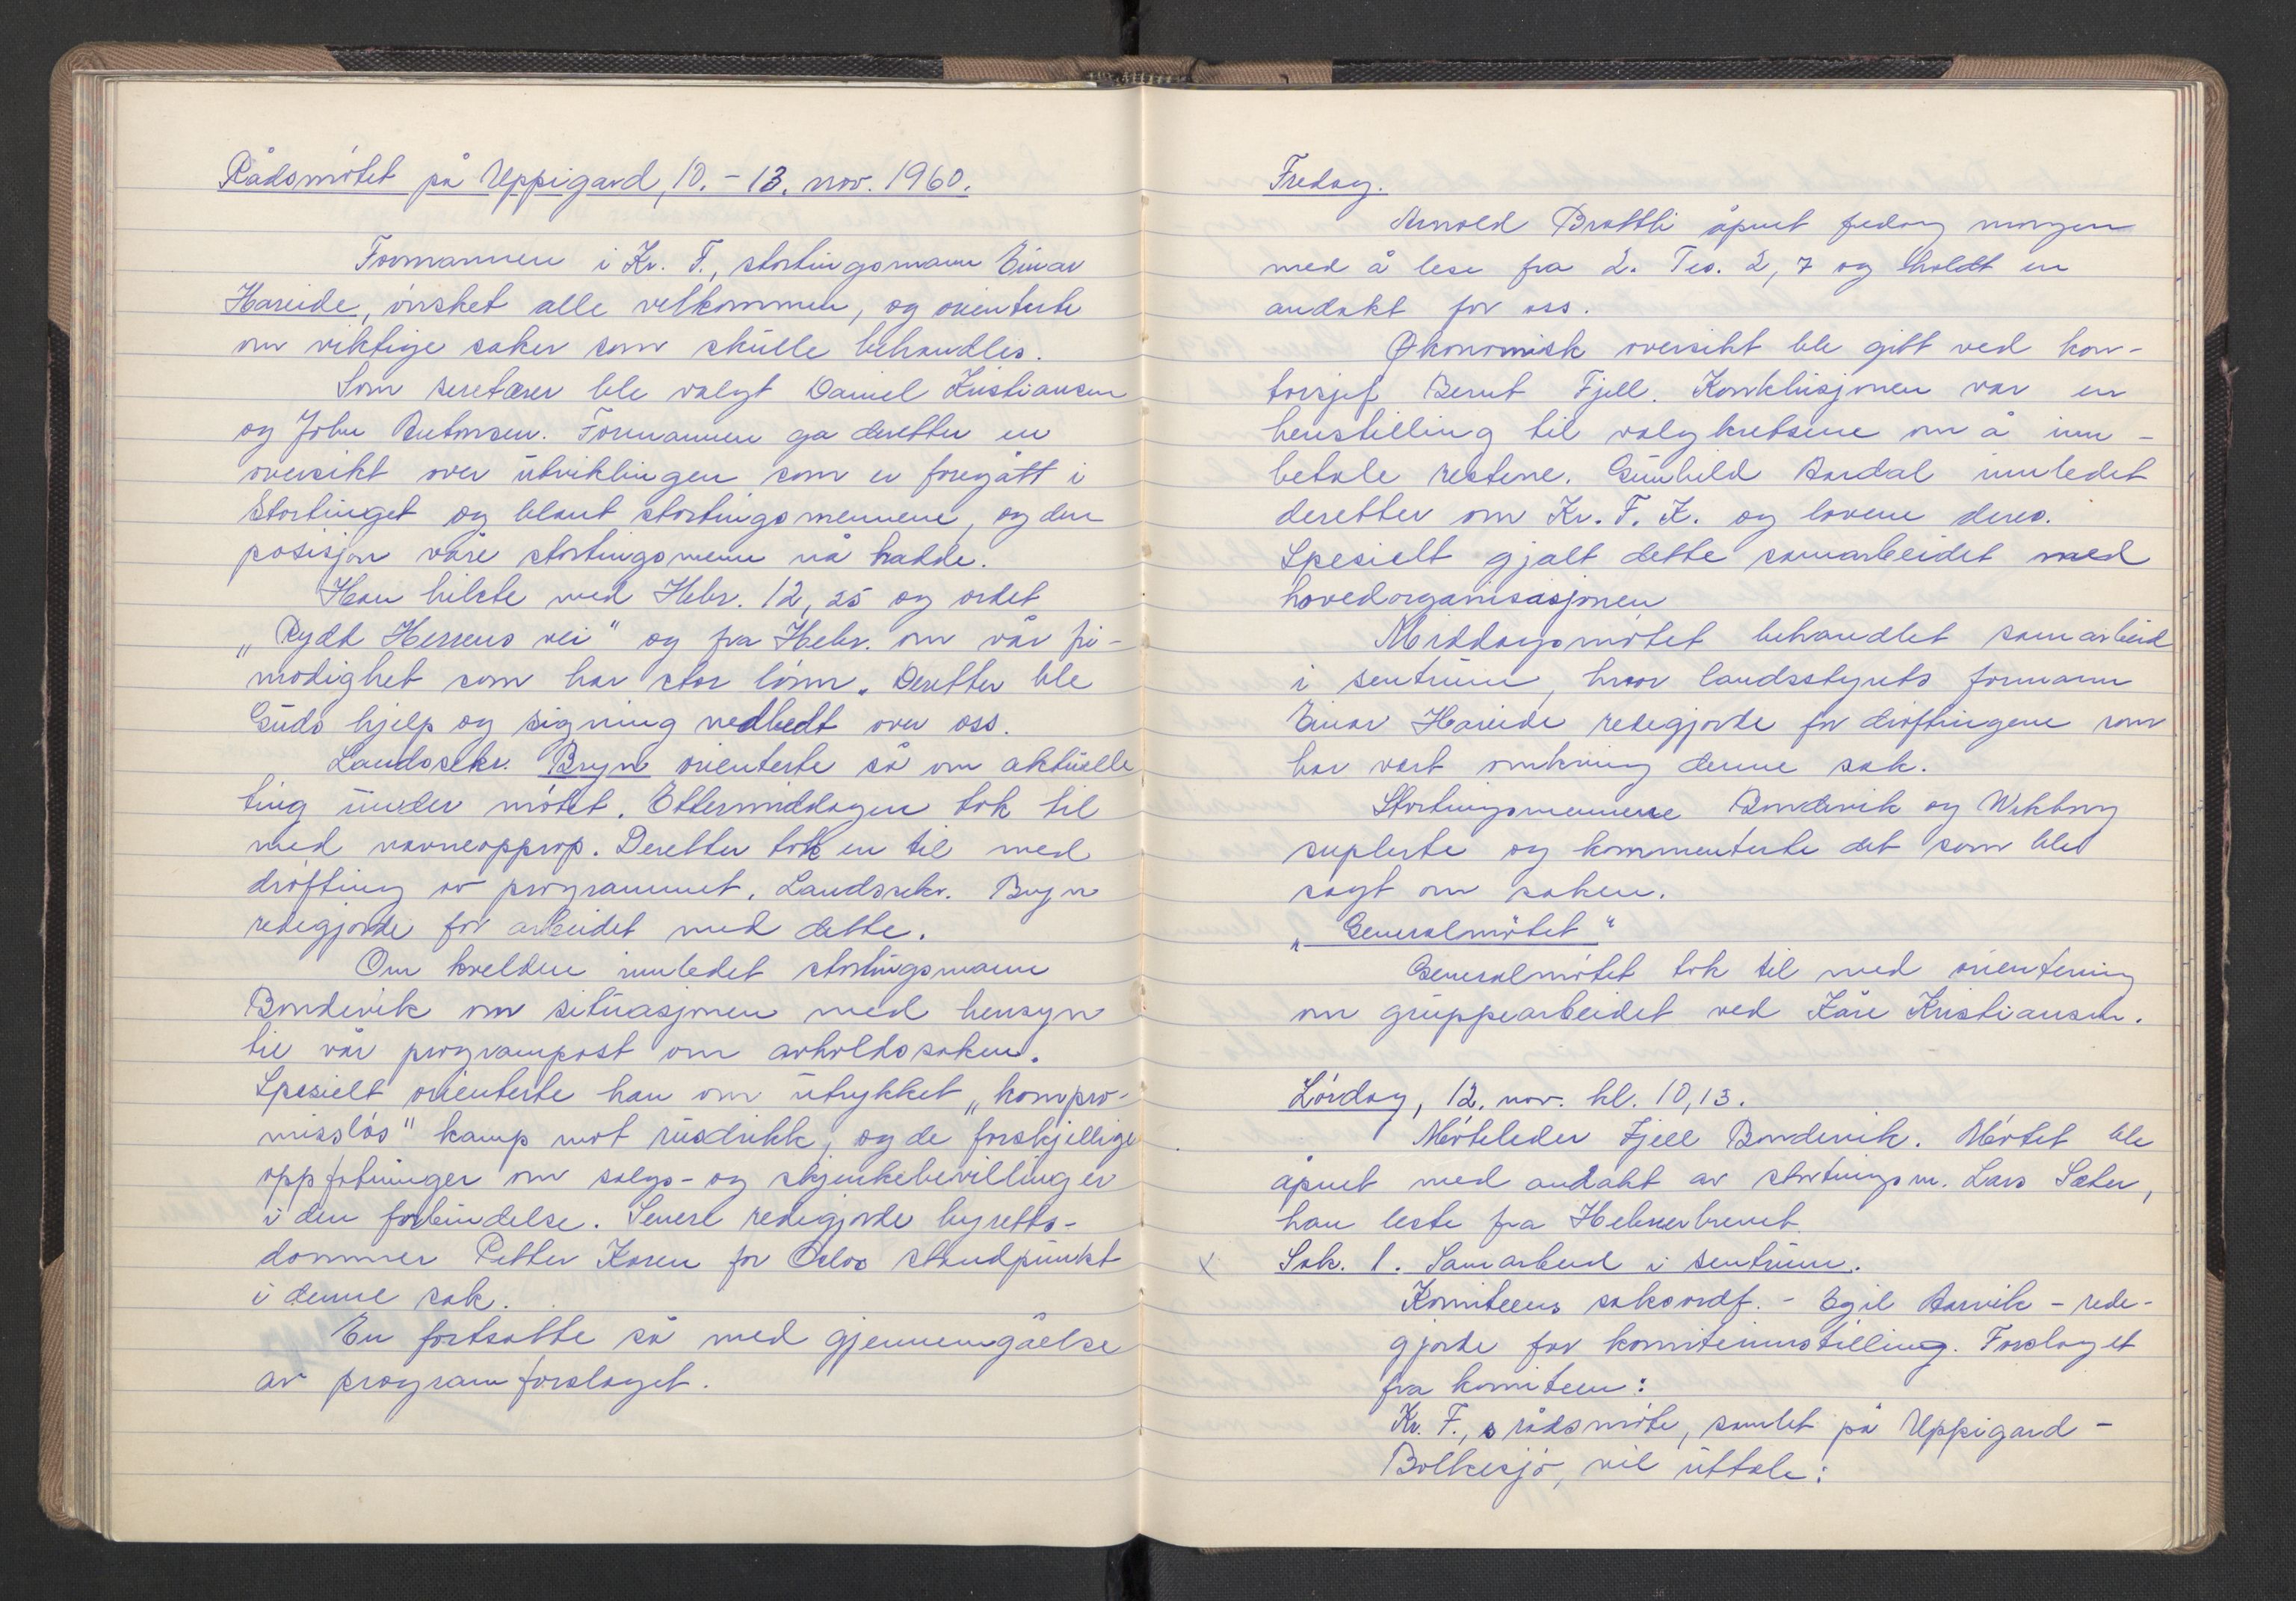 Rådsmötet på Uppigard, 10. - 13. nov. 1960.
Formannen i Kr. F., stortingsmann Einar
Hareide, önsket alle velkommen, og orienterte
om viktige saker som skulle behandles.
Som seretærer ble valgt Daniel Kristiansen
og John Antonsen. Formannen ga deretter en
oversikt over utviklingen som er foregått i
Stortinget og blant stortingsmennene, og den
posisjon våre stortingsmenn nå hadde.
Han hilste med Hebr. 12, 25 og ordet
„Rydd Herrens vei" og fra Hebr. om vår fri-
modighet som har stor lönn. Deretter ble
Guds hjelp og signing nedbedt over oss.
Landssekr. Bryn orienterte så om aktuelle
ting under mötet. Ettermiddagen tok til
med navneopprop. Deretter tok en til med
dröfting av programmet. Landssekr. Bryn
redegjorde for arbeidet med dette.
Om kvelden innledet stortingsmann
Bondevik om situasjonen med hensyn
til vår programpost om avholdssaken.
Spesielt orienterte han om utrykket „kompro-
misslös" kamp mot rusdrikk, og de forskjellige
oppfatninger om salgs- og skjenkebevillinger
i den forbindelse. Senere redegjorde byretts-
dommer Petter Koren for Oslos standpunkt
i denne sak.
En fortsatte så med gjennemgåelse
av programforslaget.
Fredag.
Arnold Brattli åpnet fredag morgen
med å lese fra 2. Tes. 2, 7 og holdt en
andakt for oss.
Økonomisk oversikt ble gitt ved kon-
torsjef Bernt Fjell. Konklusjonen var en
henstilling til valgkretsene om å inn-
betale restene. Gunhild Aardal innledet
deretter om Kr. F. K. og lovene deres.
Spesielt gjalt dette samarbeidet med
hovedorganisasjonen
Middagsmötet behandlet samarbeid
i sentrum, hvor landsstyrets formann
Einar Hareide redegjorde for dröftingene som
har vært omkring denne sak.
Stortingsmennene Bondevik og Wikborg
suplerte og kommenterte det som ble
sagt om saken.
„Generalmötet"
Generalmötet tok til med orientering
om gruppearbeidet ved Kåre Kristiansen.
Lördag, 12. nov. kl. 10,13.
Möteleder Kjell Bondevik. Mötet ble
åpnet med andakt av stortingsm. Lars Sæter,
han leste fra Hebreerbrevet
x Sak. 1. Samarbeid i sentrum.
Komiteens saksordf. - Egil Aarvik - rede-
gjorde for komiteinnstilling. Forslaget
fra komiteen:
Kr. F., s rådsmöte, samlet på Uppigard -
Bolkesjö, vil uttale: